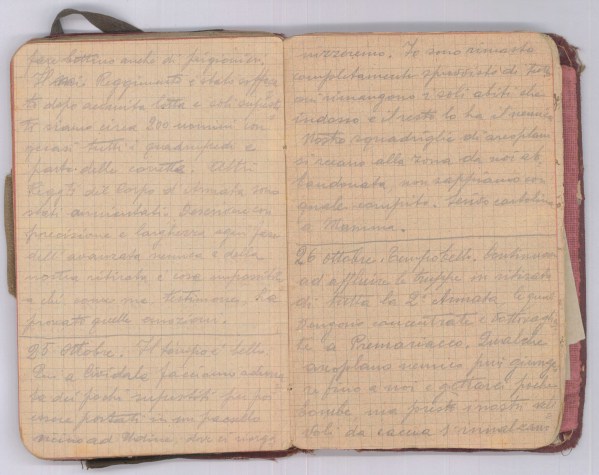 fare bottino anche di prigionieri.
Il mio Reggimento è stato soffoca-
to dopo accanita lotta e soli superst-
ti siamo circa 200 uomini con
quasi tutti i quadrupedi e
parte della carretta. Altri
Regg.ti del Corpo d'Armata sono
stati annientati. Descrivere con
precisione e larghezza ogni fase
dell'avanzata nemica e della
nostra ritirata è cosa impossibile
a chi come me, testimone, ha
provato quelle emozioni.
25 Ottobre. Il tempo è bello.
Qui a Cividale facciamo adunata
dei pochi superstiti per poi
essere portati in un paesello
vicino ad Udine, dove ci riorga
nizzeremo. Io sono rimasto
completamente sprovvisto di tutto
mi rimangono i soli abiti che
indosso e il resto lo ha il nemico.
Nostre squadriglie di aeroplani
si recano alla zona da noi ab
bandonata, non sappiamo con
quale compito. Scrivo cartolina
a Mamma.
26 Ottobre. Tempo bello. Continuano
ad affluire le truppe in ritirata
di tutta la 2ª Armata le quali
vengono concentrate
a Premariacco. Qualche
aeroplano nemico può giunge-
re fino a noi e gettare poche
bombe, ma presto i nostri
da caccia s'innalzano